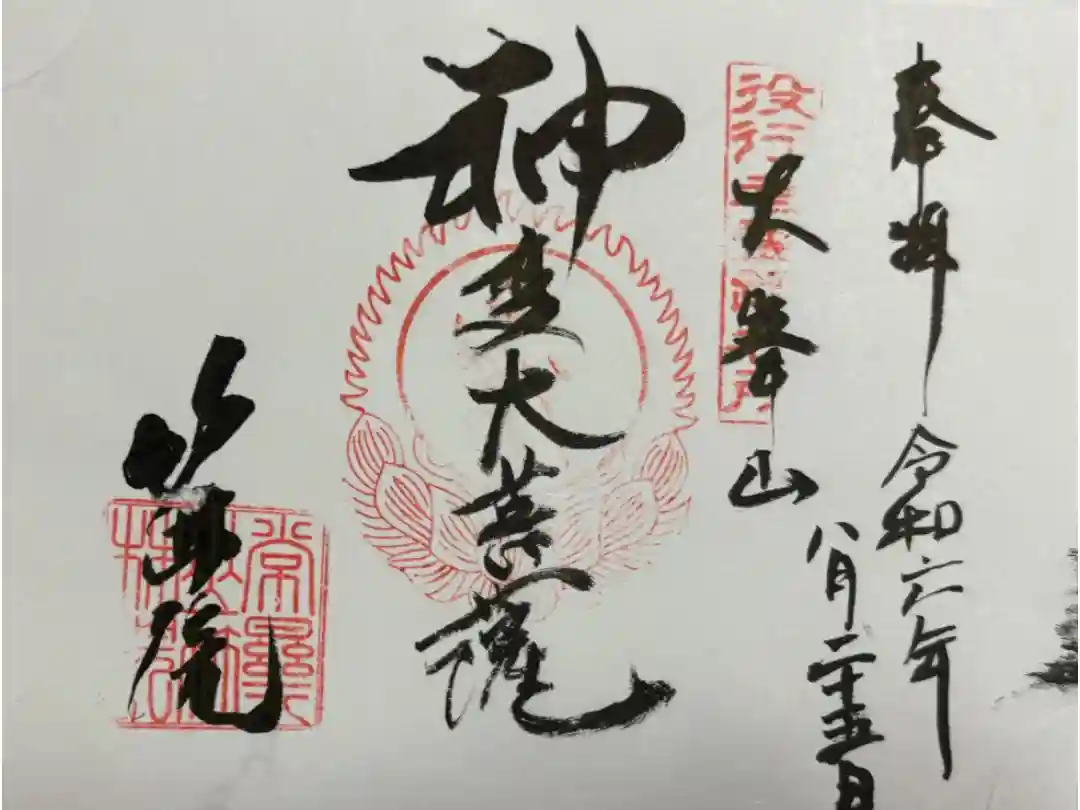 奉拝 令和六年
八月二十五日
役行者霊蹟札所
大峯山
神変大菩薩